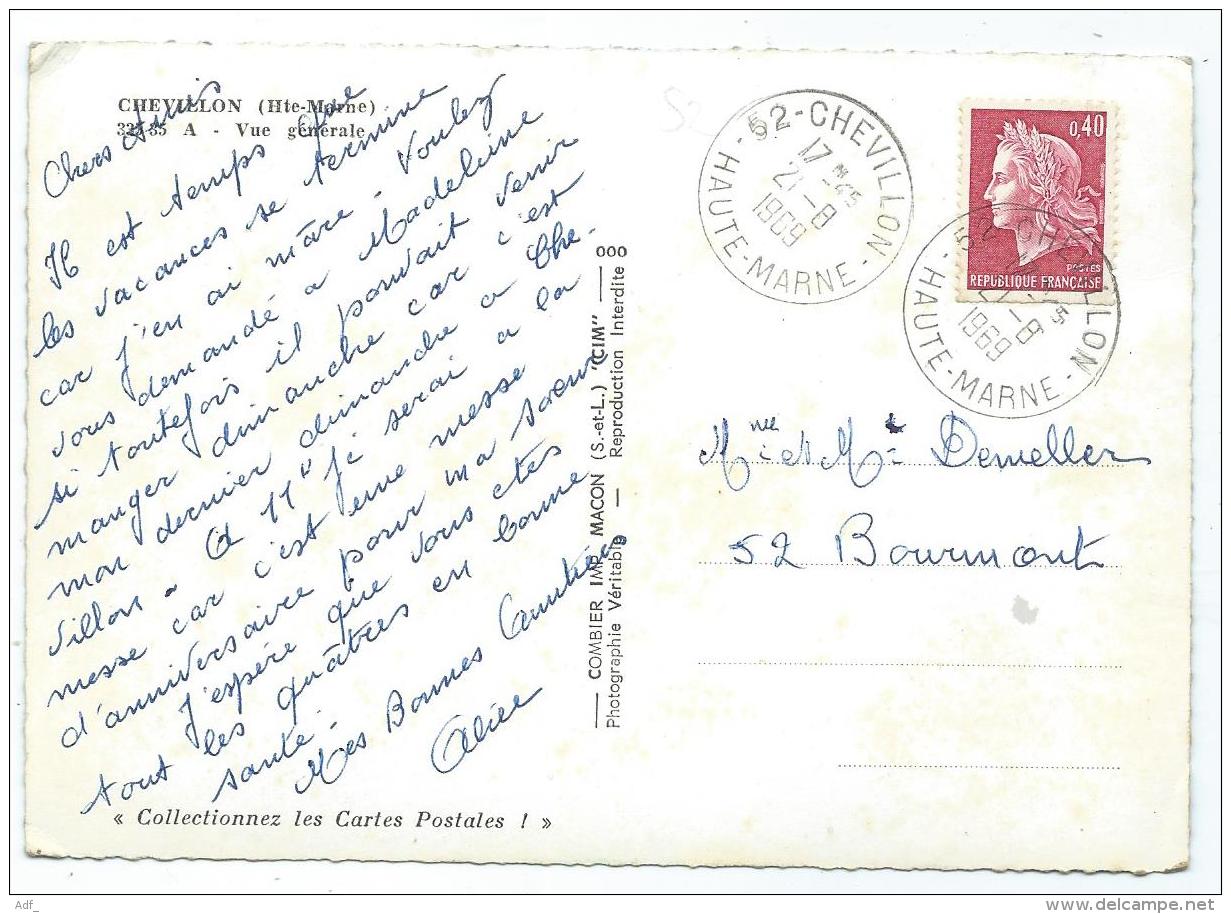 CHEVILLON (Hte-Marne)
327-35 A - Vue générale
Chers Amis
Il est temps que
les vacances se termine
car j'en ai mâre - Voulez
vous demandé a Madeleine
si toutefois il pouvait venir
manger dimanche car c'est
mon dernier dimanche a Che-
villon - a 11h je serai a la
messe car c'est une messe
d'anniversaire pour ma soeur
J'espère que vous êtes
tout les quâtres en bonne
santé.
Mes Bonnes Amitiés
Alice
« Collectionnez les Cartes Postales ! »
COMBIER IMP. MACON (S.-et-L.) "CIM" 000
Photographie Véritable - Reproduction Interdite
52
52-CHEVILLON
17H-45
21-8
1969
HAUTE-MARNE
0,40
POSTES
REPUBLIQUE FRANCAISE
52-CHEVILLON
21-8
1969
HAUTE-MARNE
Mme et Mr Demeller
52 Bourmont
Adf_
delcampe.net